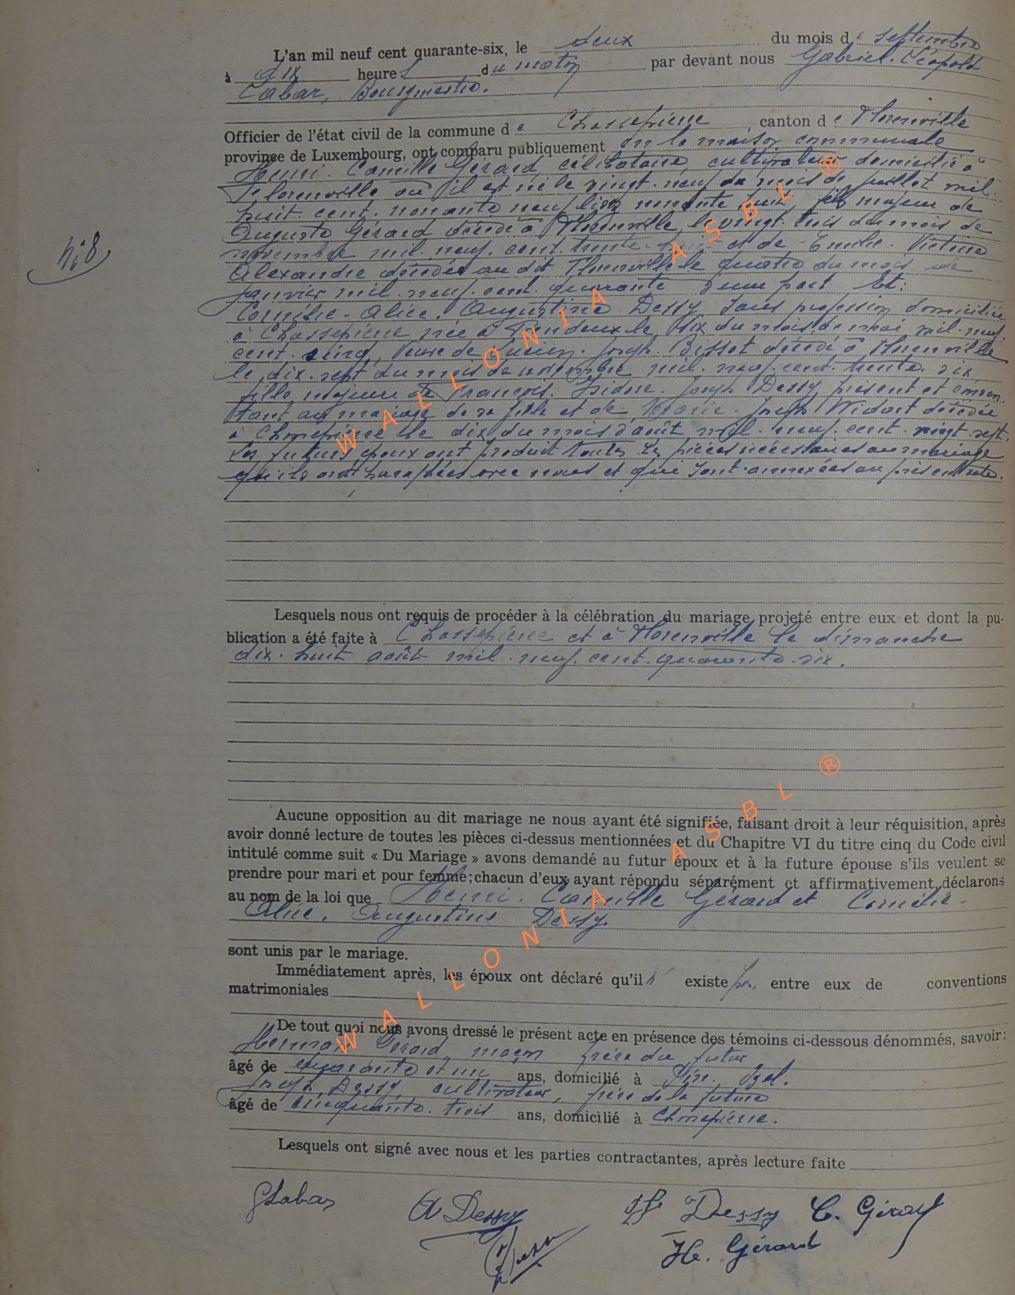 L'an mil neuf cent quarante-six, le deux du mois de septembre
à dix heures du matin par devant nous Gabriel. Léopold
Labar, Bourgmestre.
Officier de l'état civil de la commune de Chassepierre, canton de Florenville
province de Luxembourg, ont comparu publiquement en la maison communale
Henri. Camille Gérard célibataire, cultivateur domicilié à
Florenville où il est né le vingt. neuf du mois de juillet mil.
huit cent. nonante neuf fils majeur de
Auguste Gérard décédé à Florenville, le vingt. trois du mois de
novembre mil. neuf. cent. trente et de Emilie. Victorine
Alexandre décédée au dit Florenville le quatre du mois de
janvier mil. neuf. cent. quarante d'une part Et:
Cornélie. Alice. Augustine Dessy sans profession domiciliée
à Chassepierre née à le six du mois de mai mil. neuf
cent. cinq, Veuve de Lucien. Joseph Bissot décédé à Florenville
le dix. sept du mois de novembre mil. neuf. cent. trente. six
fille majeure de François. Isidore. Joseph Dessy présent et consen.
tant au mariage de sa fille et de Marie. Joseph décédée
à Chassepierre le dix du mois d'août mil. neuf. cent. vingt. sept.
Les futurs époux ont produit toutes les pièces nécessaires au mariage
qu'ils ont paraphées avec nous et qui sont annexées au présent acte.
N° 8
Lesquels nous ont requis de procéder à la célébration du mariage projeté entre eux et dont la pu-
blication a été faite à Chassepierre et à Florenville le dimanche
dix. huit août mil. neuf. cent. quarante. six.
Aucune opposition au dit mariage ne nous ayant été signifiée, faisant droit à leur réquisition, après
avoir donné lecture de toutes les pièces ci-dessus mentionnées et du Chapitre VI du titre cinq du Code civil
intitulé comme suit « Du Mariage » avons demandé au futur époux et à la future épouse s'ils veulent se
prendre pour mari et pour femme; chacun d'eux ayant répondu séparément et affirmativement, déclarons
au nom de la loi que Henri. Camille Gérard et Cornélie.
Alice. Augustine Dessy.
sont unis par le mariage.
Immédiatement après, les époux ont déclaré qu'il n' existe pas entre eux de conventions
matrimoniales
De tout quoi nous avons dressé le présent acte en présence des témoins ci-dessous dénommés, savoir:
Gérard, frère du futur
âgé de quarante et un ans, domicilié à Izel.
Joseph Dessy, cultivateur, frère de la future
âgé de cinquante. trois ans, domicilié à Chassepierre.
Lesquels ont signé avec nous et les parties contractantes, après lecture faite
GLabar A Dessy Dessy C. Gérard
H. Gérard
WALLONIA ASBL ®
WALLONIA ASBL ®